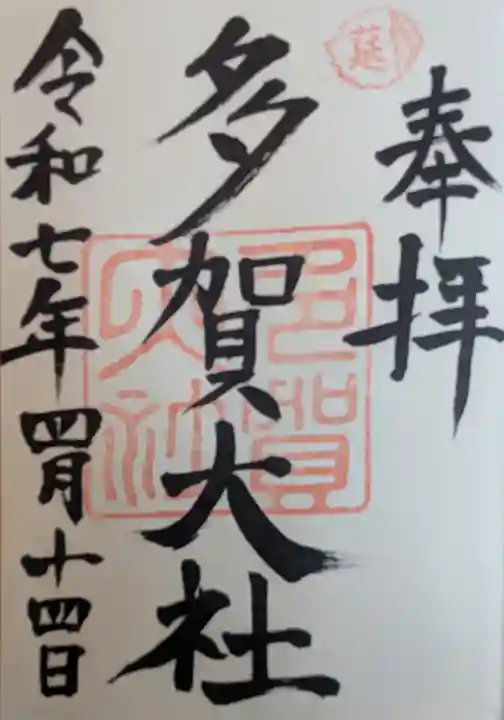 奉拝
多賀大社
令和七年四月十四日
多賀
大社
莚